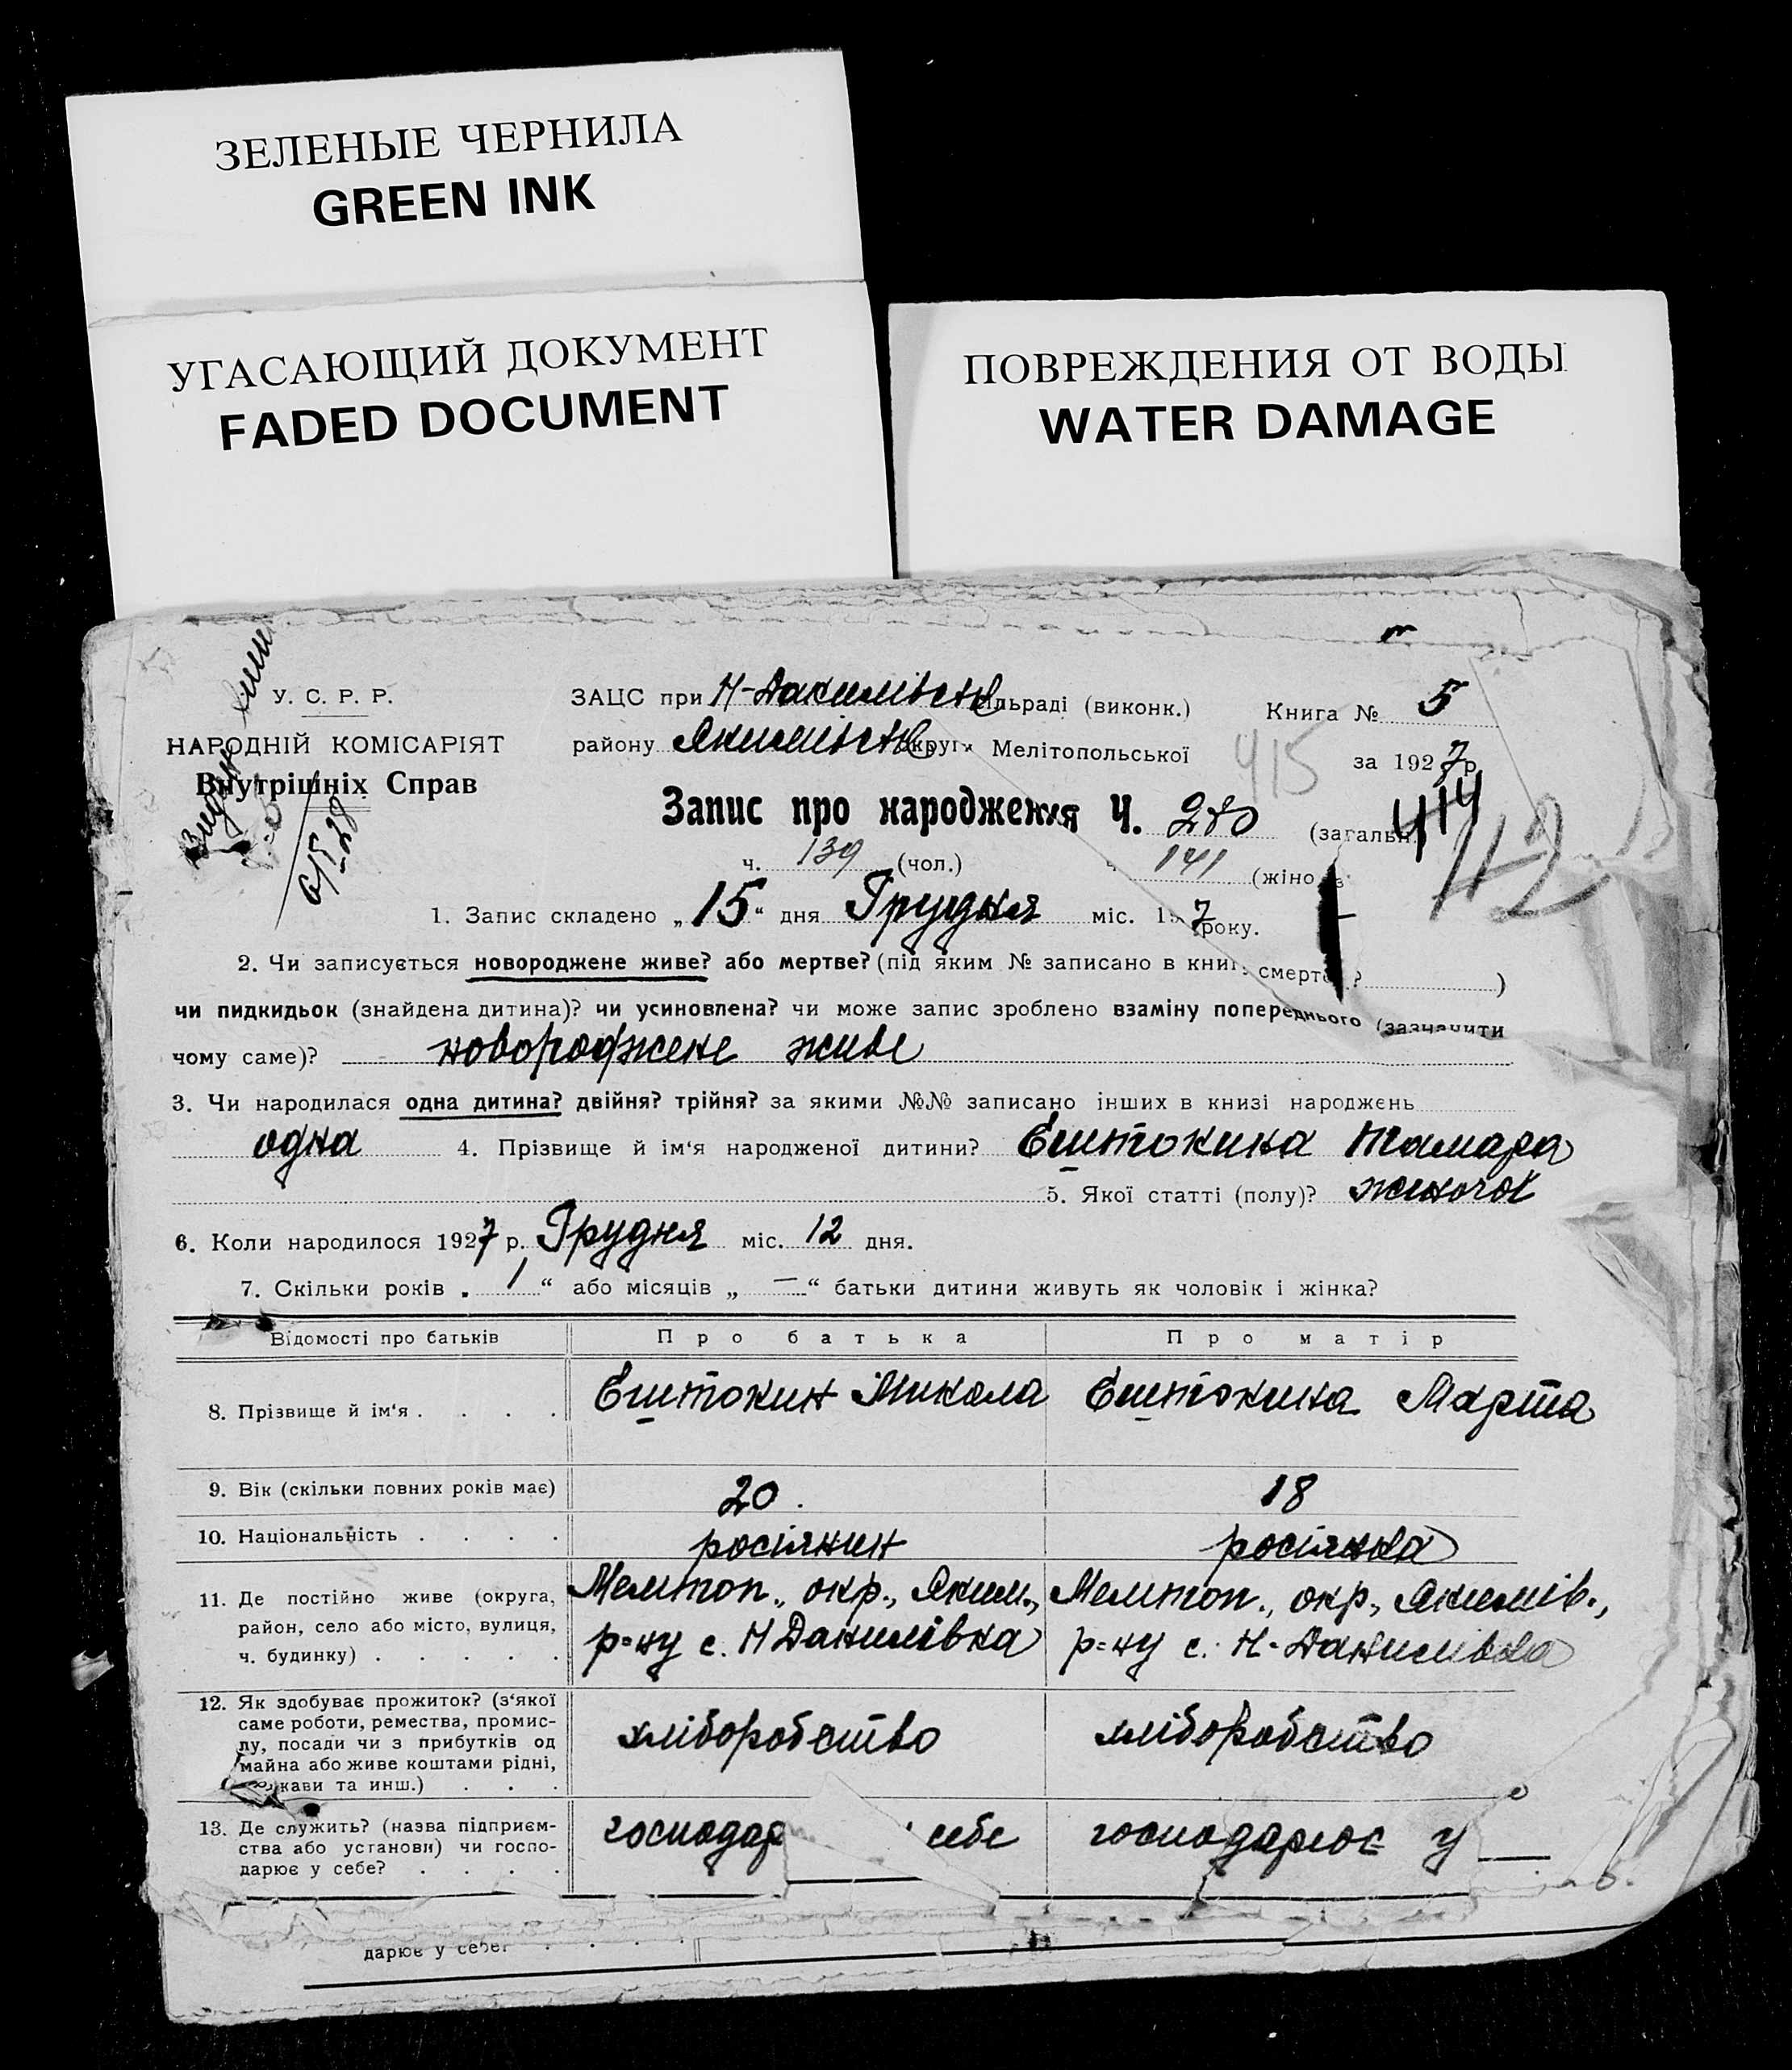 ЗЕЛЕНЫЕ ЧЕРНИЛА
GREEN INK
УГАСАЮЩИЙ ДОКУМЕНТ
FADED DOCUMENT
ПОВРЕЖДЕНИЯ ОТ ВОДЫ
WATER DAMAGE
У. С. Р. Р.
НАРОДНІЙ КОМІСАРІЯТ
Внутрішніх Справ
6/5-28
ЗАЦС при Н-Данилівськ льраді (виконк.)
району Якимівськ округи Мелітопольської
Книга № 5
за 1927 р.
415
414
Запис про народження Ч. 280 (загальн.
112
ч. 139 (чол.) ч 141 (жіно
1. Запис складено „15“ дня Грудня міс. 19 7 року.
2. Чи записується новороджене живе? або мертве? (під яким № записано в книг смерте ? )
чи пидкидьок (знайдена дитина)? чи усиновлена? чи може запис зроблено взаміну попереднього (зазначити
чому саме)? новороджене живе
3. Чи народилася одна дитина? двійня? трійня? за якими №№ записано інших в книзі народжень
одна 4. Прізвище й ім‘я народженої дитини? Ештокина Тамара
5. Якої статті (полу)? жиночої
6. Коли народилося 1927 р. Грудня міс. 12 дня.
7. Скільки років „ 1 “ або місяців „ — “ батьки дитини живуть як чоловік і жінка?
Відомості про батьків Про батька Про матір
8. Прізвище й ім‘я . . . . Ештокин Микола Ештокина Марта
9. Вік (скільки повних років має) 20. 18
10. Національність . . . . росіянин росіянка
11. Де постійно живе (округа, Мелитоп., окр., Яким., Мелитоп., окр., Якимів.,
район, село або місто, вулиця, р=ну с. Н Данилівка р=ну с. Н-Данилівка
ч. будинку) . . . . .
12. Як здобуває прожиток? (з‘якої
саме роботи, ремества, промис-
лу, посади чи з прибутків од хліборобство хліборобство
майна або живе коштами рідні,
жави та инш.) . . .
13. Де служить? (назва підприєм- господар себе господарює у
ства або установи) чи госпо-
дарює у себе? . . . .
дарює у себе? . . . .